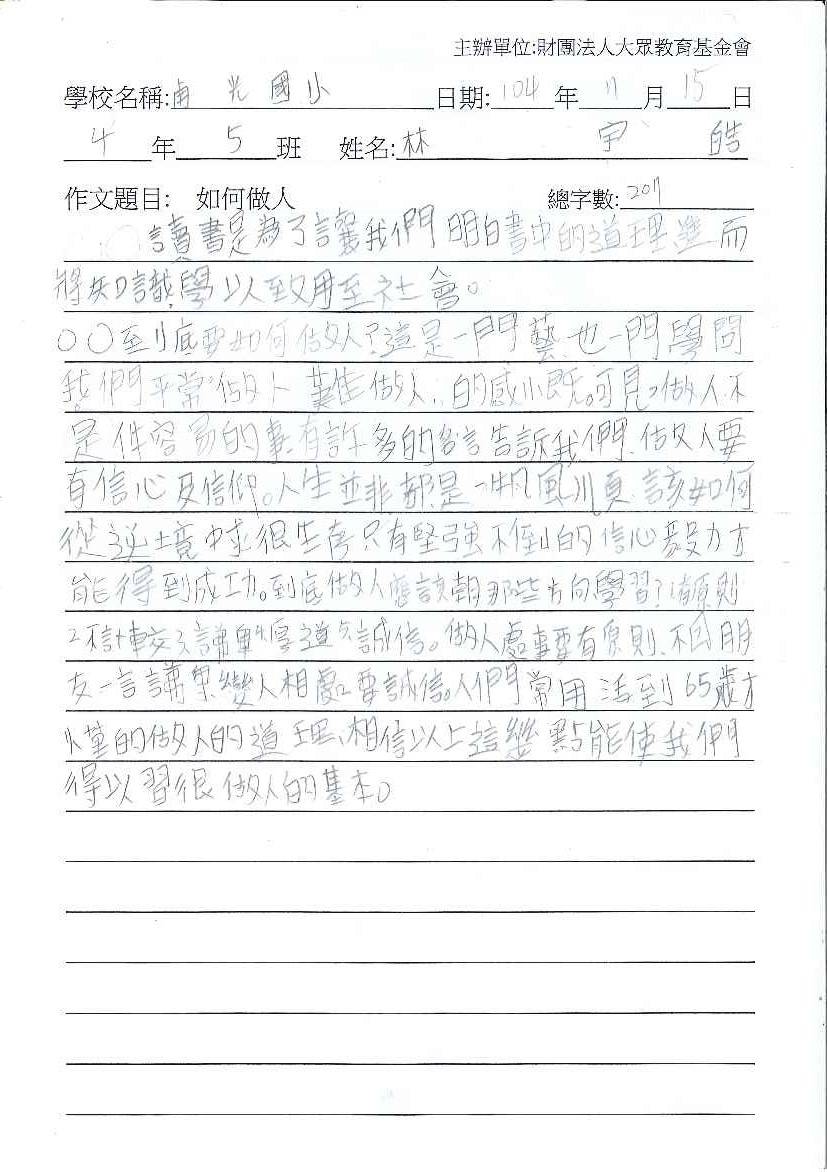 主辦單位:財團法人大眾教育基金會
學校名稱:南光國小 日期:104年11月15日
4年5班 姓名:林宇皓
作文題目: 如何做人 總字數:201
讀書是為了讓我們明白書中的道理進而
將知識學以致用至社會。
〇〇到底要如何做人?這是一門藝也一門學問
我們平常做人難做人的感慨。可見做人不
是件容易的事有許多的名言告訴我們做人要
有信心及信仰。人生並非都是一帆風順該如何
從逆境中求很生存只有堅強不倒的信心毅力方
能得到成功。到底做人應該朝那些方向學習?1有原則
2不計較3謙卑4厚道5誠信。做人處事要有原則、不因朋
友一言語舉變人相處要誠信。人們常用活到65歲方
懂的做人的道理、相信以上這幾點能使我們
得以習很做人的基本。